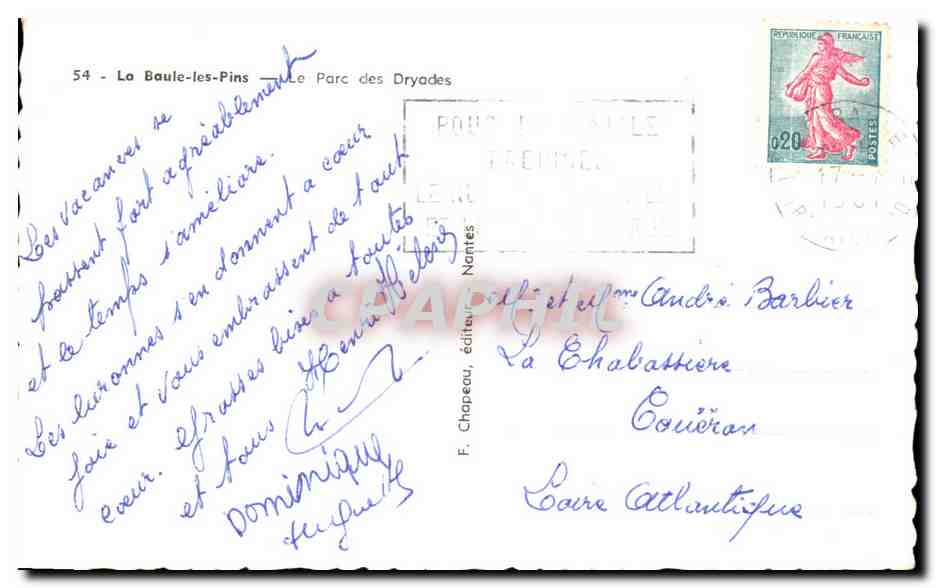 54 - La Baule-les-Pins — Le Parc des Dryades
Les vacances se
passent fort agréablement
et le temps s'améliore.
Les luronnes s'en donnent a cœur
joie et vous embrassent de tout
cœur. Grosses bises a toutes
et tous Henri Helène
DOMINIQUE
Huguette
F. Chapeau, éditeur, Nantes
REPUBLIQUE FRANÇAISE
0,20
POSTES
POUR
Mr et Mme André Barbier
La Chabassière
Couëron
Loire Atlantique
CPAPHIL